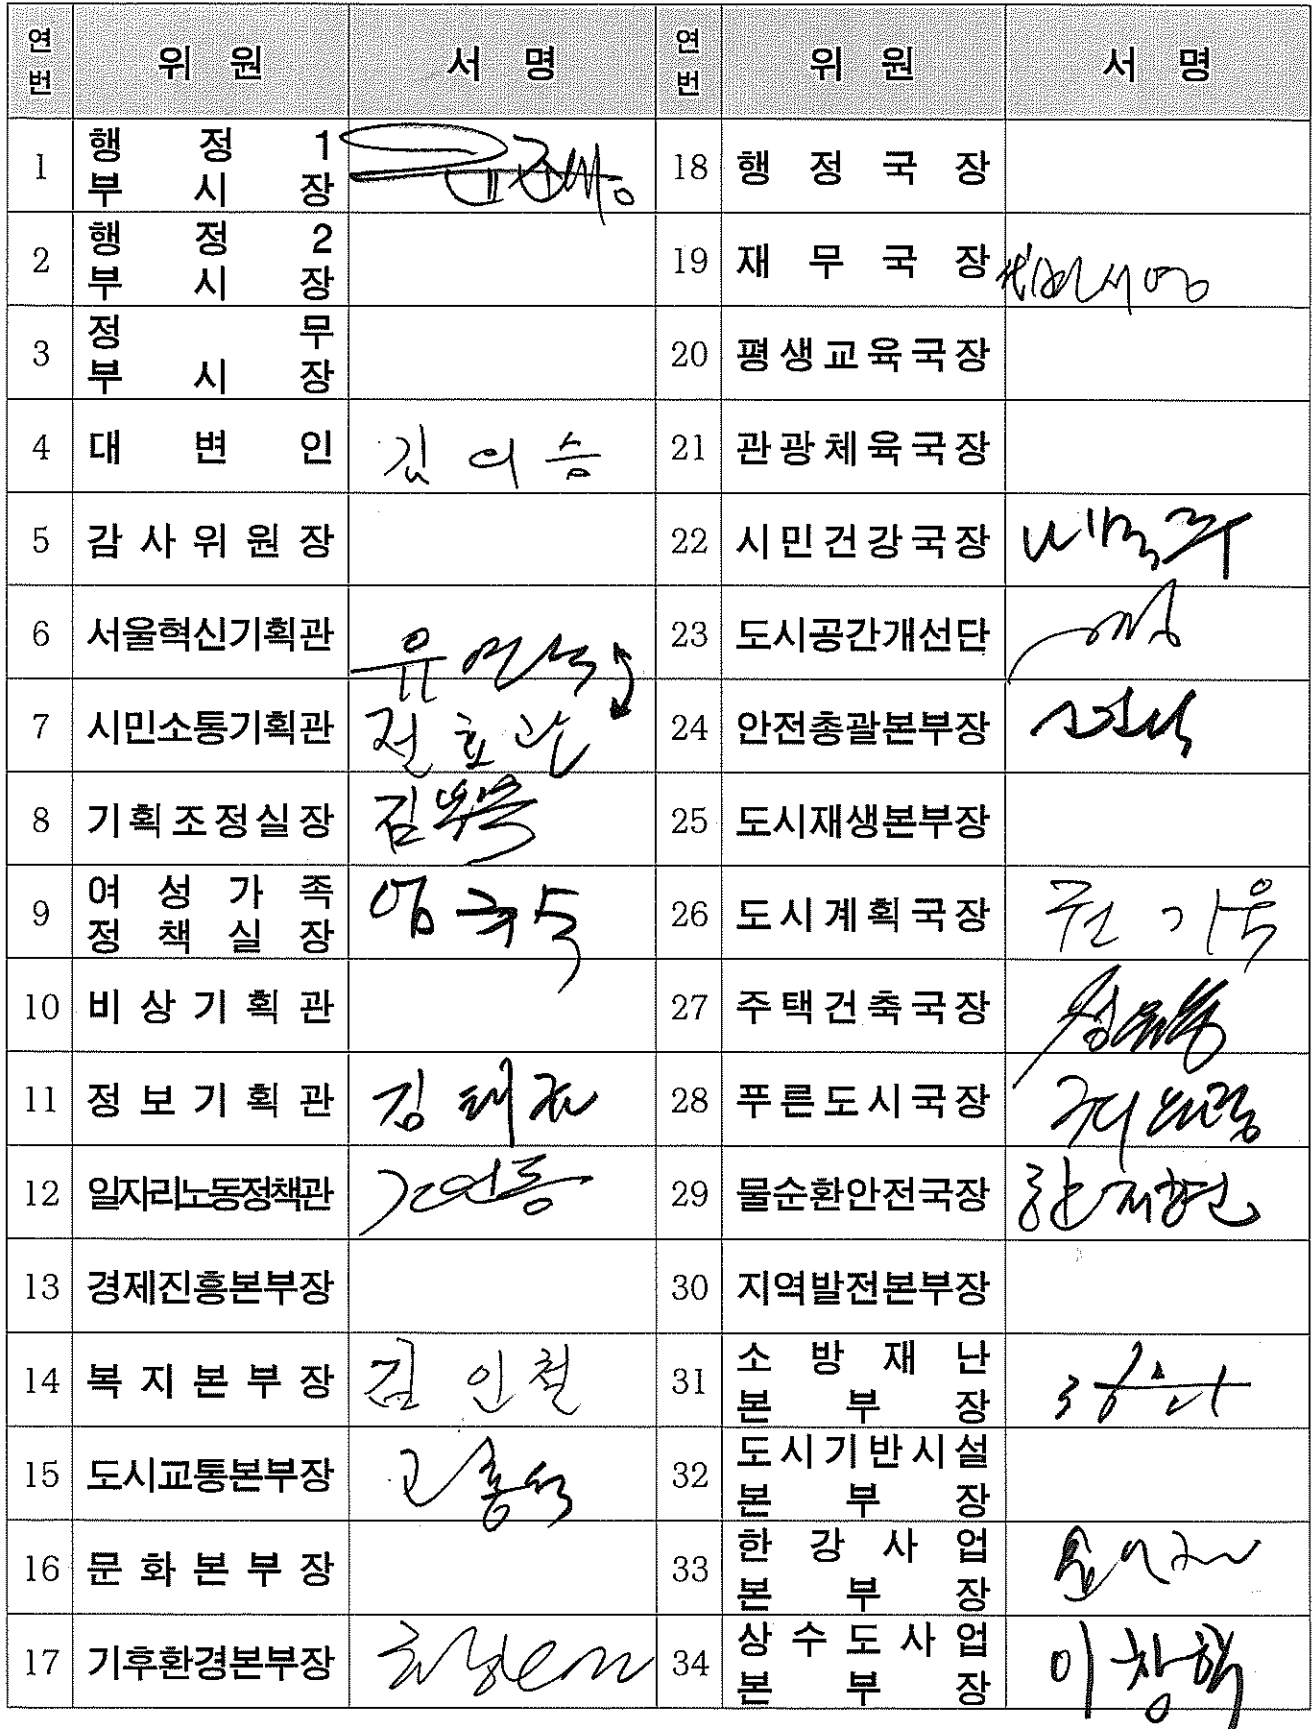 연번 위 원 서 명 연번 위 원 서 명
1 행 정 1 부 시 장 18 행 정 국 장
2 행 정 2 부 시 장 19 재 무 국 장
3 정 무 부 시 장 20 평생교육국장
4 대 변 인 김의승 21 관광체육국장
5 감사위원장 22 시민건강국장
6 서울혁신기획관 23 도시공간개선단
7 시민소통기획관 전효관 24 안전총괄본부장
8 기획조정실장 25 도시재생본부장
9 여성가족정책실장 엄규숙 26 도시계획국장 권기욱
10 비상기획관 27 주택건축국장
11 정보기획관 김태균 28 푸른도시국장
12 일자리노동정책관 29 물순환안전국장 한제현
13 경제진흥본부장 30 지역발전본부장
14 복지본부장 김인철 31 소방재난본부장
15 도시교통본부장 고홍석 32 도시기반시설본부장
16 문화본부장 33 한강사업본부장
17 기후환경본부장 34 상수도사업본부장 이창학